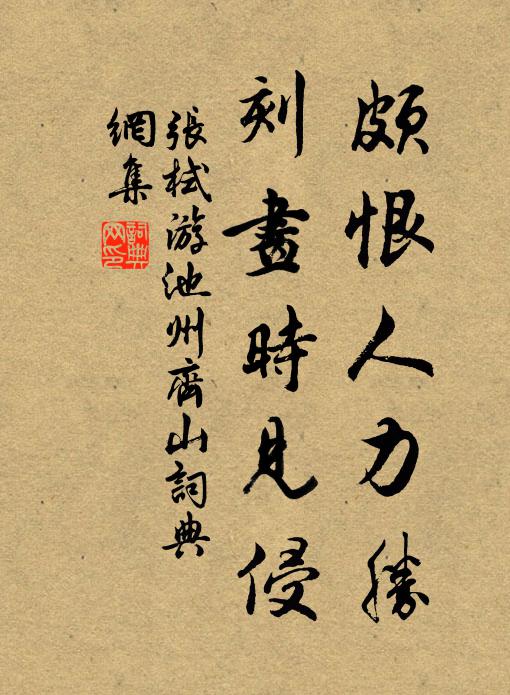 頗恨人力勝
刻畫時見侵
張栻游池州齊山詞典
網集
詞典
网印